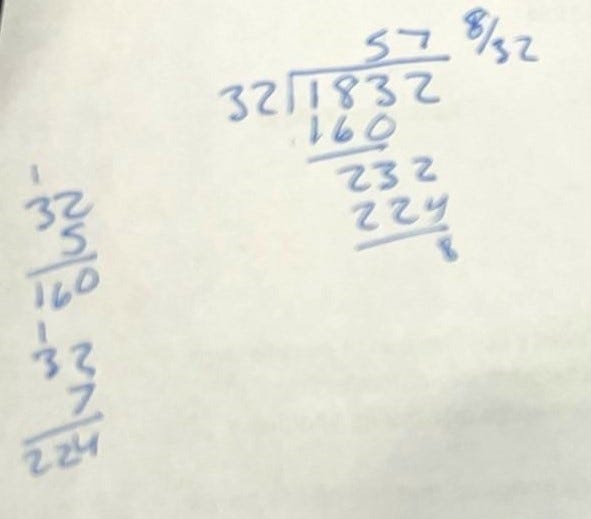 57 8/32
32 1832
160
232
224
8
1
32
5
160
1
32
7
224